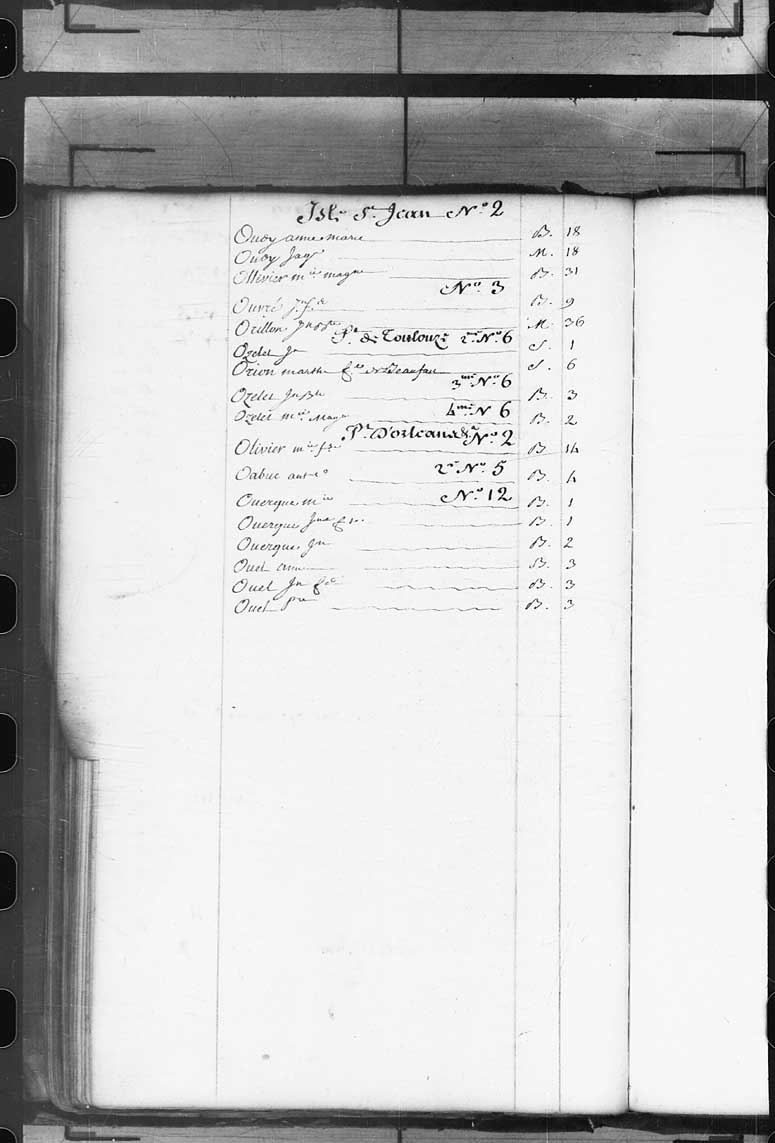 Isle St Jean No 2
Ouoy anne marie B. 18
Ouoy Jaqs M. 18
Ollivier mie magne B. 31
No 3
Ouvré B. 9
Orillon Jn Bte M. 36
Pt de Toulouze 2me No 6
Ozelet Jn S. 1
Orion marthe fe de Beaufau S. 6
3me No 6
Ozelet Jn Bte B. 3
4me N 6
Ozelet mie Magne B. 2
Pt D'orleans No 2
Olivier mie B. 14
2e No 5
Oabuc ant B. 4
No 12
Ouerque mie B. 1
Ouerque B. 1
Ouerque Jn B. 2
Ouel anne B. 3
Ouel Jn B. 3
Ouel Pre B. 3